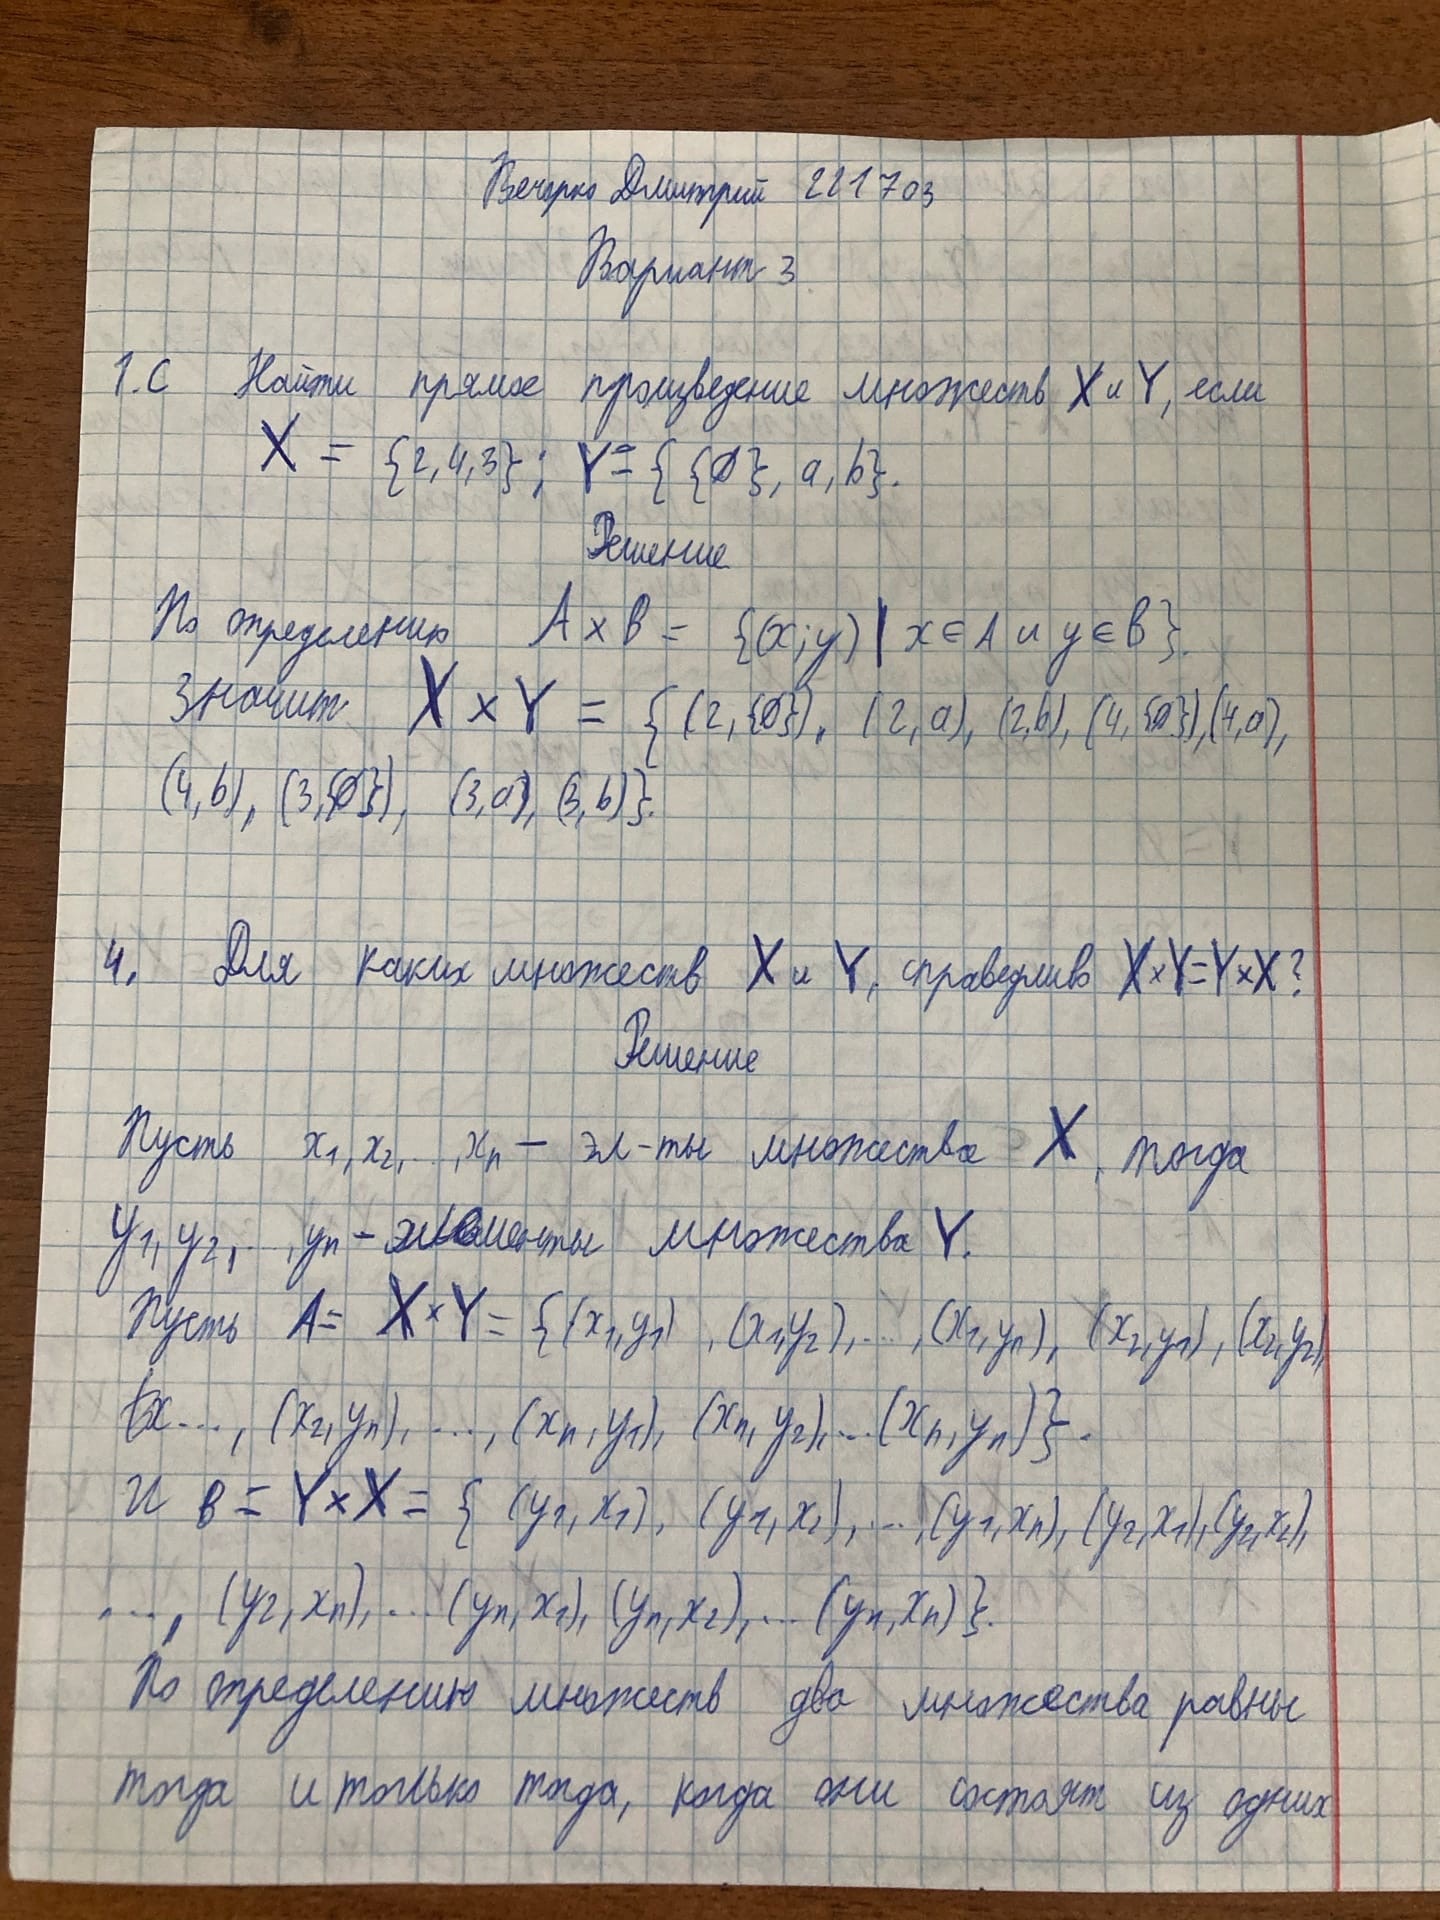 Вечорко Дмитрий 221703
Вариант 3.
1.С Найти прямое произведение множеств X и Y, если
X = {2,4,3}; Y = { {∅}, a, b}.
Решение
По определению A × B = {(x;y) | x ∈ A и y ∈ B}.
Значит X × Y = {(2,{∅}), (2,a), (2,b), (4,{∅}),(4,a),
(4,b), (3,{∅}), (3,a), (3,b)}.
4. Для каких множеств X и Y, справедливо X×Y=Y×X?
Решение
Пусть x₁,x₂,...,xₙ — эл-ты множества X, тогда
y₁,y₂,...,yₙ - элементы множества Y.
Пусть A= X×Y= {(x₁,y₁) ,(x₁,y₂),...,(x₁,yₙ), (x₂,y₁), (x₂,y₂),
..., (x₂,yₙ), ..., (xₙ,y₁), (xₙ,y₂),...(xₙ,yₙ)}.
И B = Y×X= { (y₁,x₁), (y₁,x₂),...,(y₁,xₙ),(y₂,x₁),(y₂,x₂),
..., (y₂,xₙ),...(yₙ,x₁),(yₙ,x₂),...(yₙ,xₙ)}.
По определению множеств два множества равны
тогда и только тогда, когда они состоят из одних